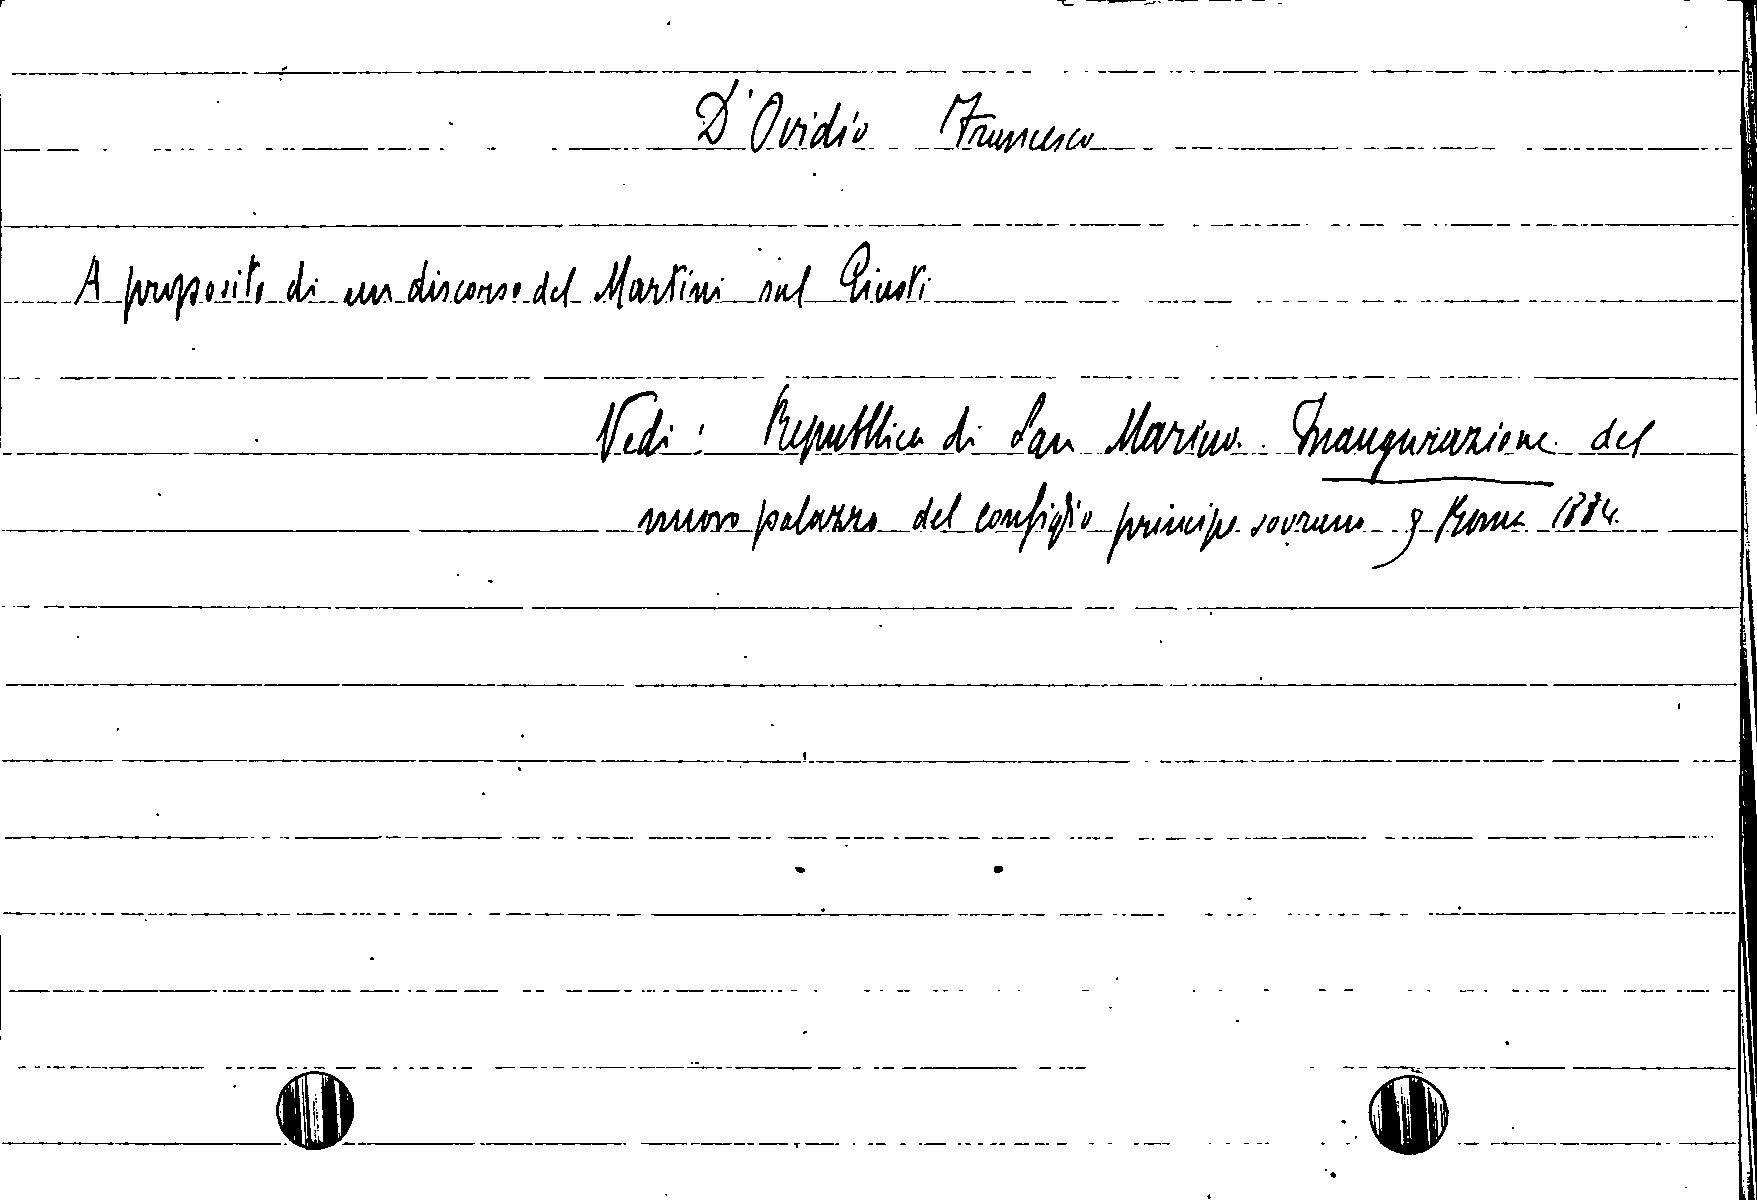 D'Ovidio Francesco
A proposito di un discorso del Martini sul Giusti
Vedi: Repubblica di San Marino. Inaugurazione del
nuovo palazzo del consiglio principe sovrano, Roma 1884.